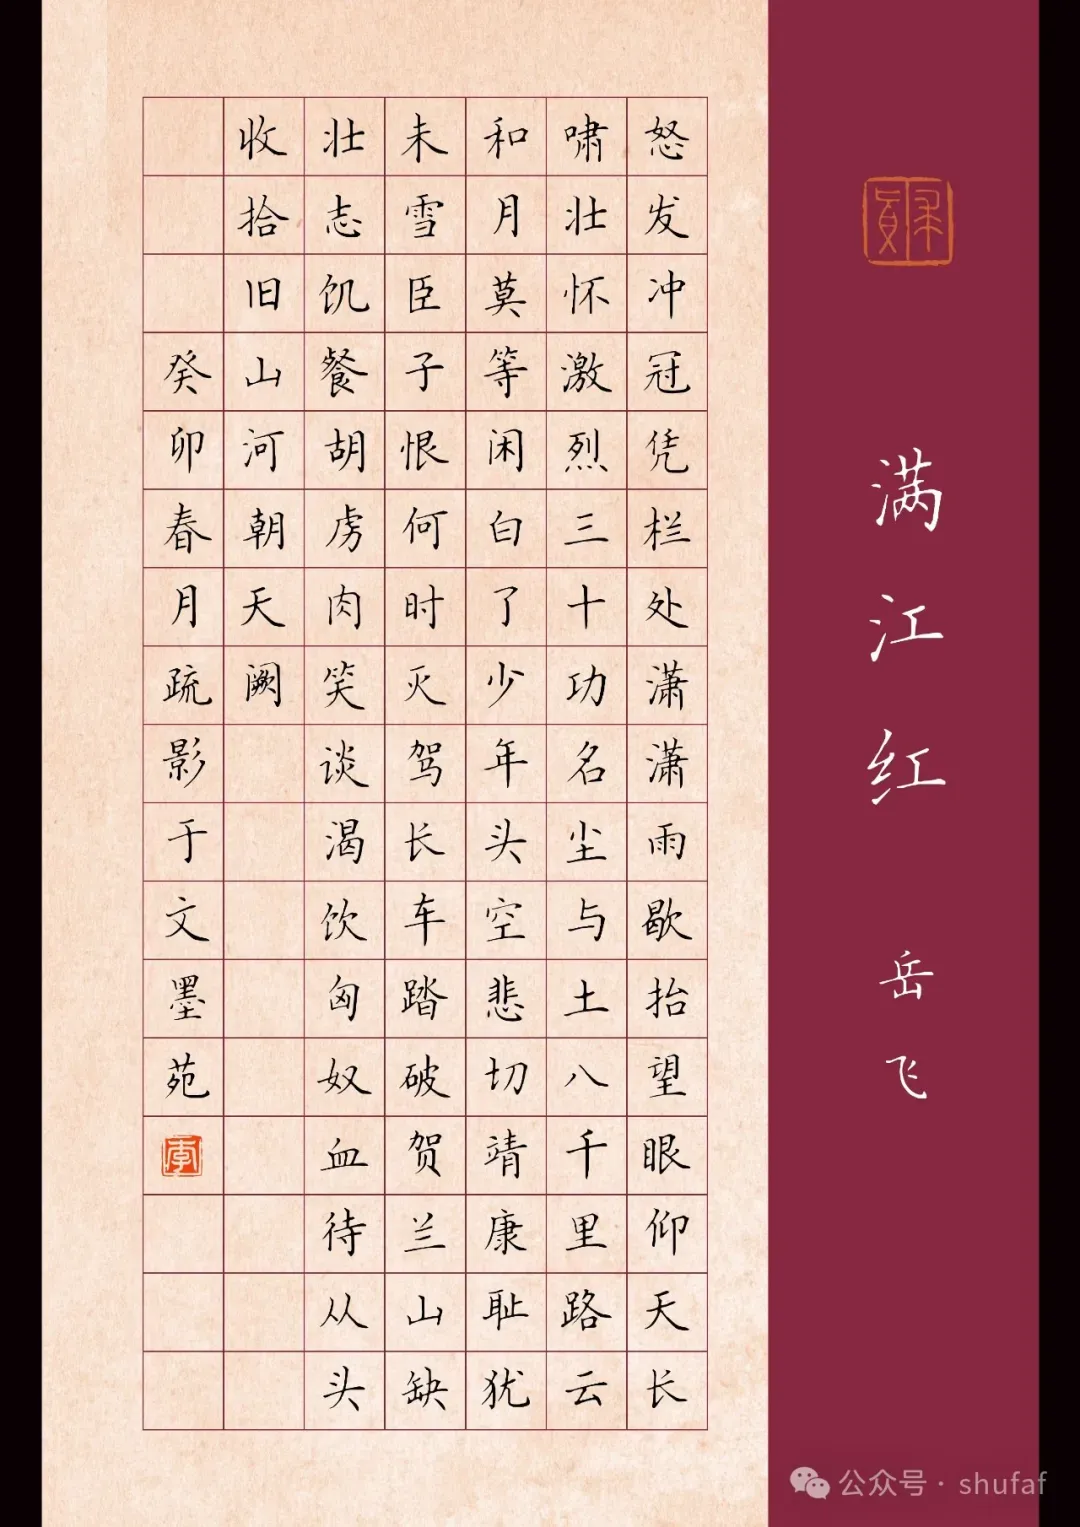 满江红 岳飞
怒发冲冠凭栏处潇潇雨歇抬望眼仰天长
啸壮怀激烈三十功名尘与土八千里路云
和月莫等闲白了少年头空悲切靖康耻犹
未雪臣子恨何时灭驾长车踏破贺兰山缺
壮志饥餐胡虏肉笑谈渴饮匈奴血待从头
收拾旧山河朝天阙
癸卯春月疏影于文墨苑
李
公众号·shufaf